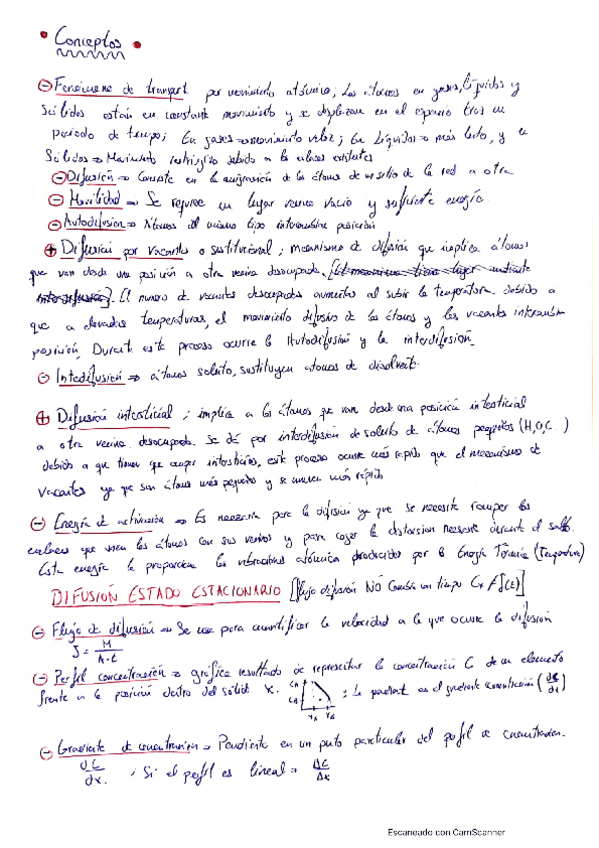 Conceptos
Fenómeno de transport por movimiento atómico; Los átomos en gases, líquidos y
Sólidos están en constante movimiento y se desplazan en el espacio tras un
periodo de tiempo; En gases ⇒ movimiento veloz; En Líquidos ⇒ más lento, y en
Sólidos ⇒ Movimiento restringido debido a los enlaces existentes
Difusión ⇒ Consiste en la migración de los átomos de un sitio de la red a otro
Movilidad ⇒ Se requiere un lugar vecino vacío y suficiente energía.
Autodifusión ⇒ Átomos del mismo tipo intercambian posición
Difusión por vacantes o sustitucional; mecanismo de difusión que implica átomos
que van desde una posición a otra vecina desocupada.
El numero de vacantes desocupadas aumentan al subir la temperatura debido a
que a elevadas temperaturas, el movimiento difusivo de los átomos y las vacantes intercambian
posición, Durante este proceso ocurre la Autodifusión y la interdifusión.
Interdifusión ⇒ átomos soluto, sustituyen átomos de disolvente.
Difusión intersticial; implica a los átomos que van desde una posición intersticial
a otra vecina desocupada. Se dá por interdifusión de soluto de átomos pequeños (H,O,C )
debido a que tienen que ocupar intersticios, este proceso ocurre más rápido que el mecanismo de
vacantes ya que son átomos más pequeños y se mueven más rápido
Energía de activación ⇒ Es necesaria para la difusión ya que se necesita romper los
enlaces que unen los átomos con sus vecinos y para la distorsion necesaria durante el salto.
Esta energía la proporciona las vibraciones atómica producidas por la Energía Térmica (Temperatura)
DIFUSIÓN ESTADO ESTACIONARIO [flujo difusión NO cambia con tiempo
Flujo de difusión ⇒ Se usa para cuantificar la velocidad a la que ocurre la difusión
J = M
A·t
Perfil concentración ⇒ gráfica resultado de representar la concentración C de un elemento
frente a la posición dentro del sólido x. : La pendiente es el gradiente concentración (dC
dx)
Gradiente de concentracion ⇒ Pendiente en un punto particular del perfil de concentracion.
dC
dx. ; Si el perfil es lineal ⇒ ΔC
Δx
Escaneado con CamScanner